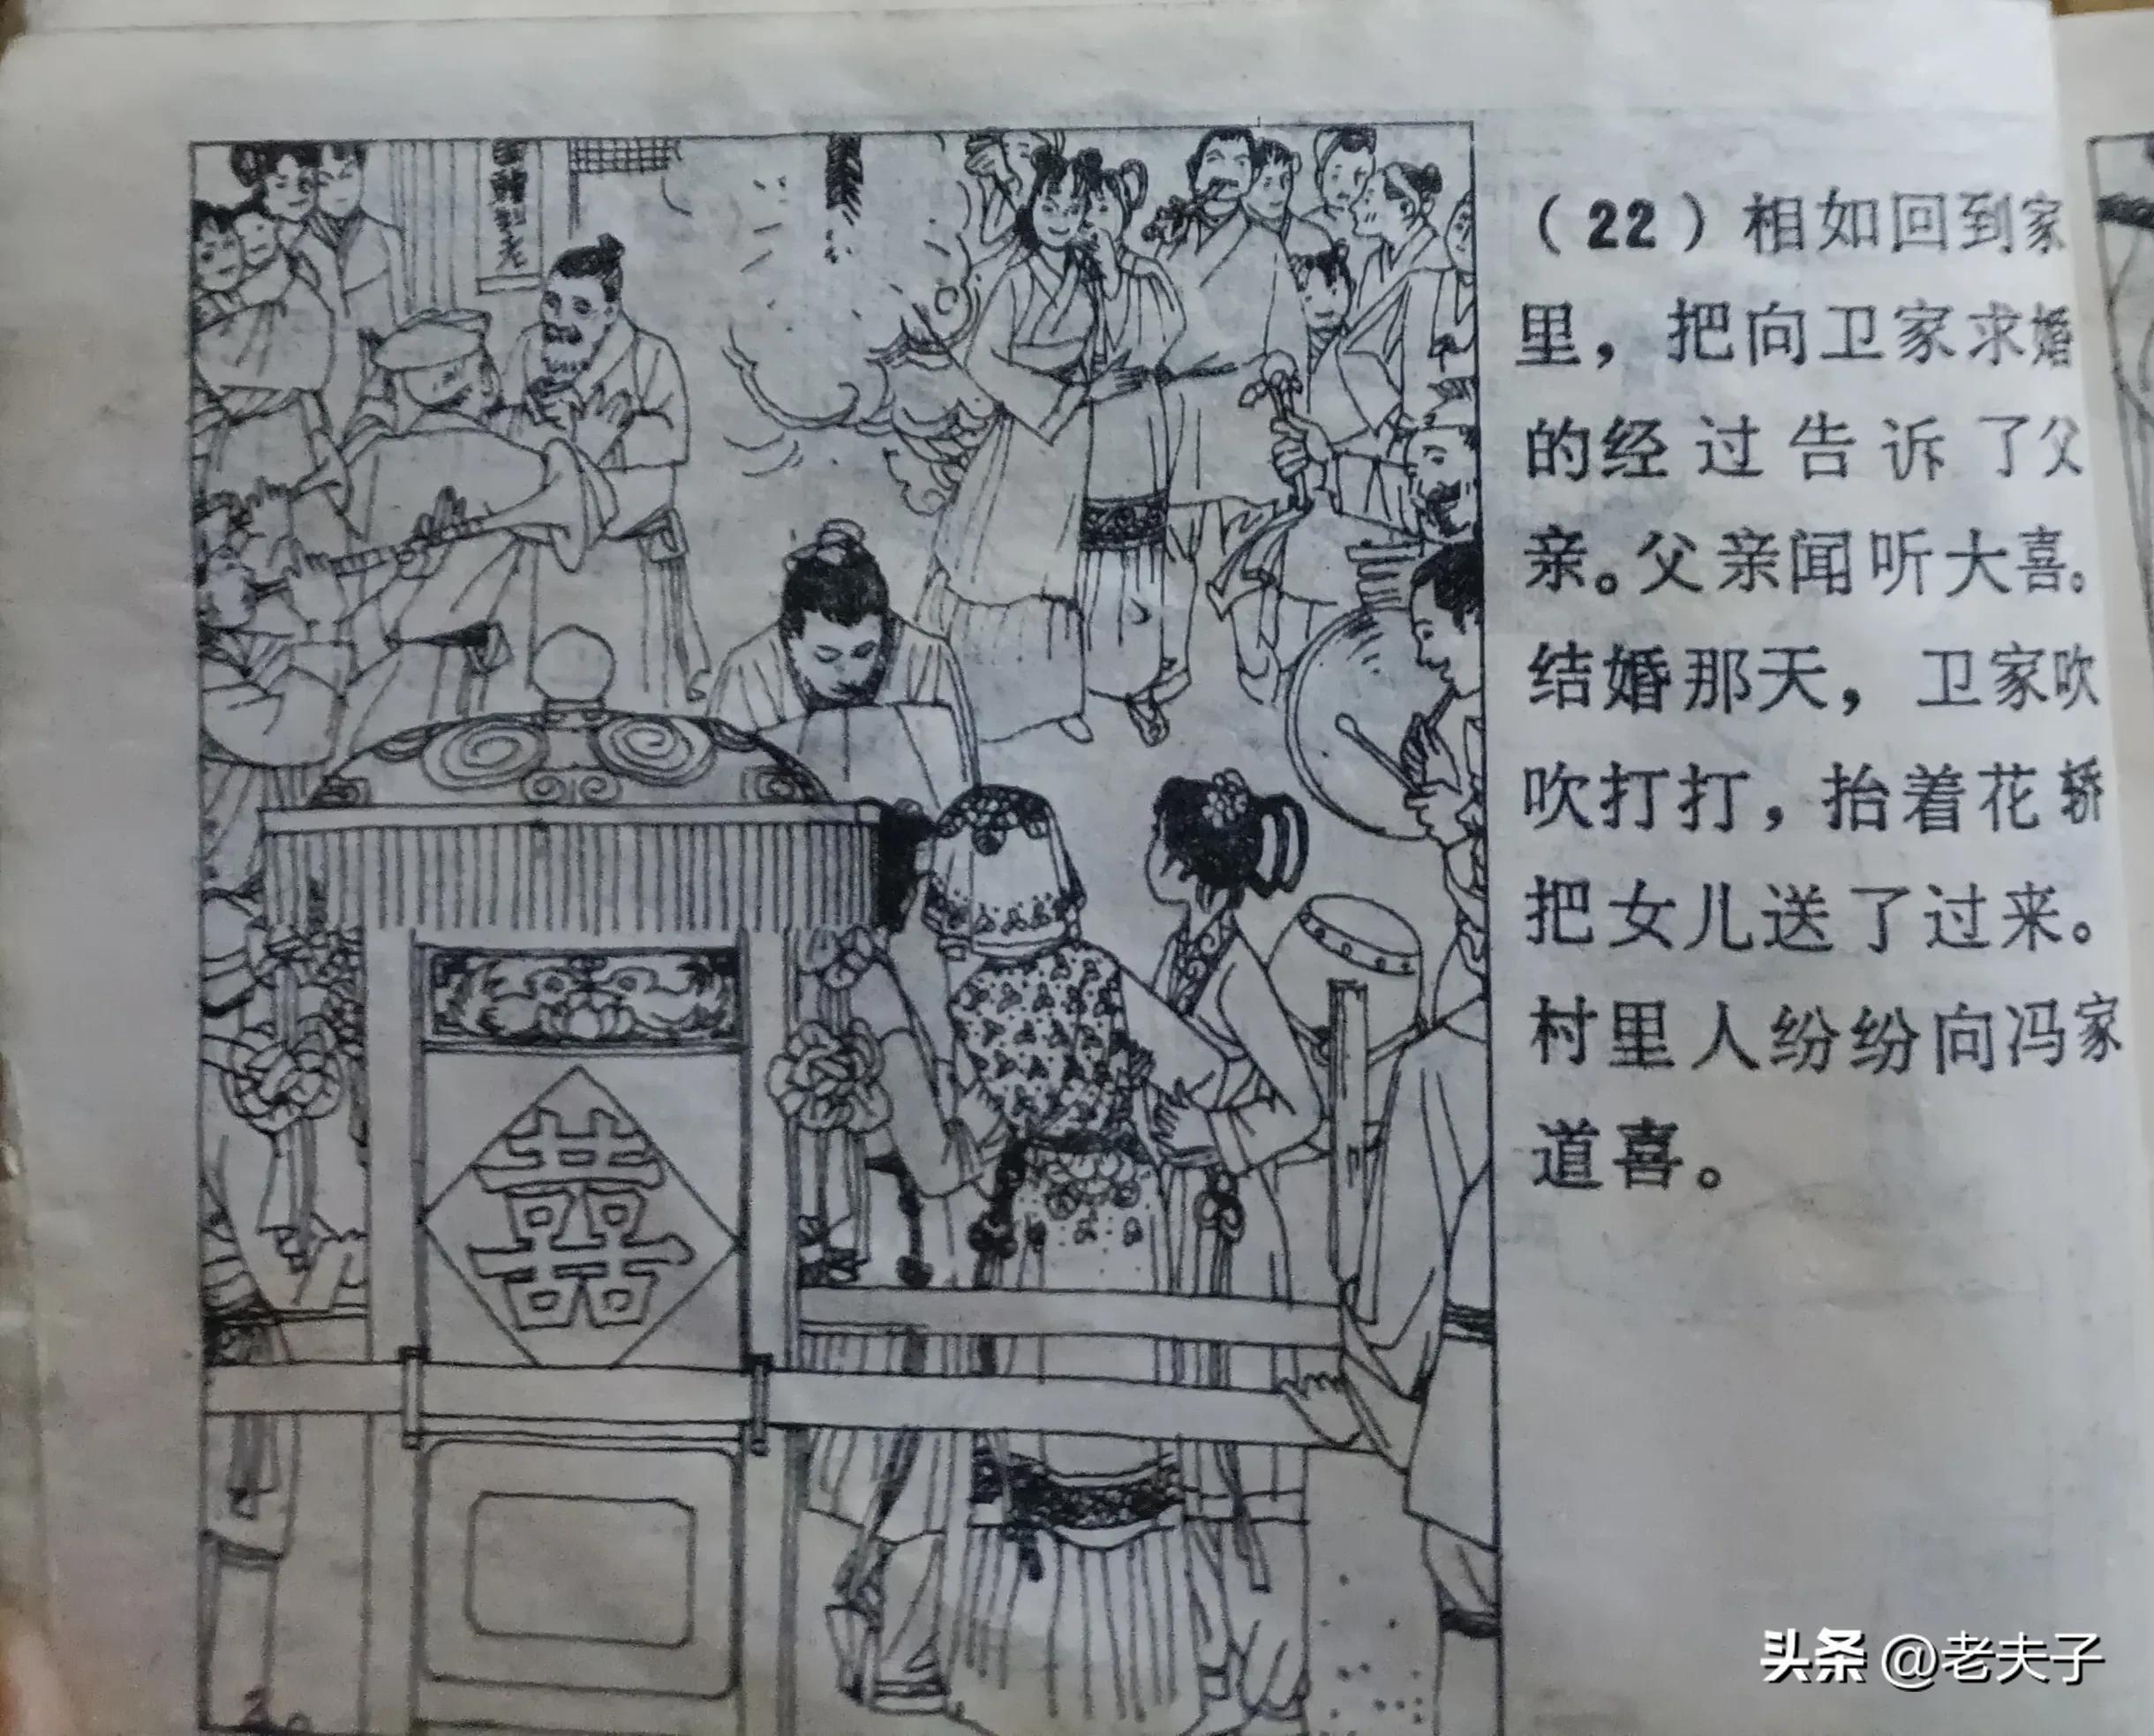 （22）相如回到家
里，把向卫家求婚
的经过告诉了父
亲。父亲闻听大喜。
结婚那天，卫家吹
吹打打，抬着花轿
把女儿送了过来。
村里人纷纷向冯家
道喜。
囍
头条 @老夫子